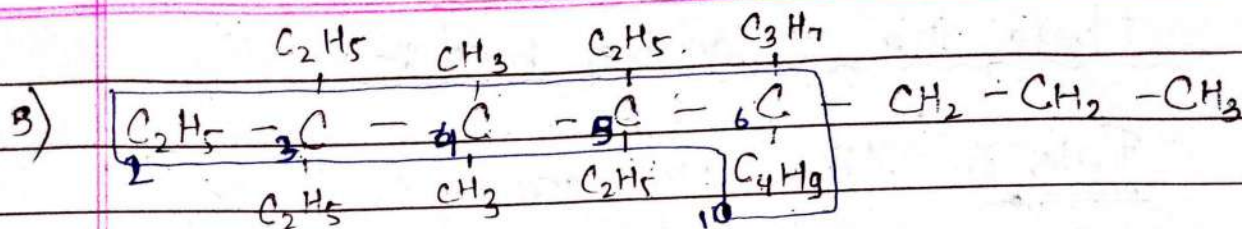 C2H5 CH3 C2H5. C3H7
3) C2H5 - 3C - 4C - 5C - 6C - CH2 - CH2 - CH3
2 C2H5 CH3 C2H5 C4H9
10